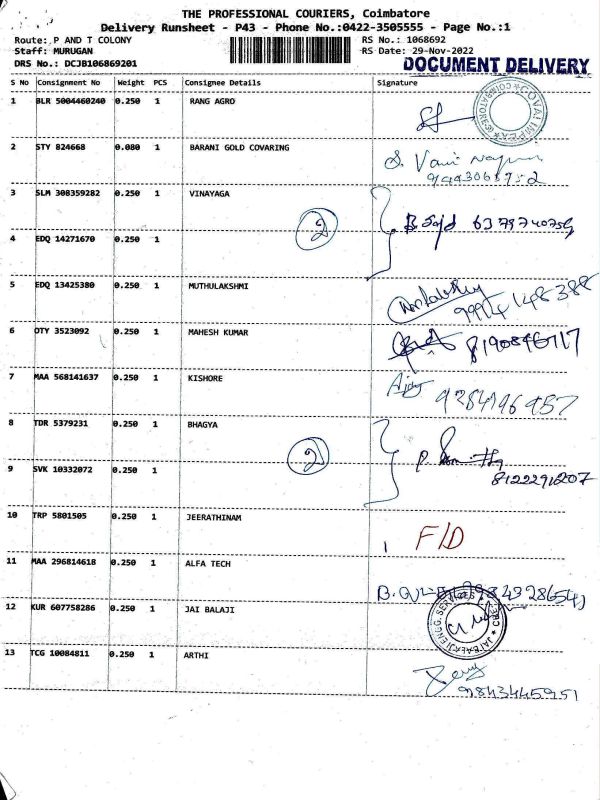 THE PROFESSIONAL COURIERS, Coimbatore
Delivery Runsheet - P43 - Phone No.:0422-3505555 - Page No.:1
Route: P AND T COLONY RS No.: 1068692
Staff: MURUGAN RS Date: 29-Nov-2022
DRS No.: DCJB106869201 DOCUMENT DELIVERY
S No Consignment No Weight PCS Consignee Details Signature
1 BLR 5004460240 0.250 1 RANG AGRO
2 STY 824668 0.080 1 BARANI GOLD COVARING
3 SLM 308359282 0.250 1 VINAYAGA
2
4 EDQ 14271670 0.250 1
5 EDQ 13425380 0.250 1 MUTHULAKSHMI
6 OTY 3523092 0.250 1 MAHESH KUMAR
7 MAA 568141637 0.250 1 KISHORE
8 TDR 5379231 0.250 1 BHAGYA
2
9 SVK 10332072 0.250 1
10 TRP 5801505 0.250 1 JEERATHINAM
F/D
11 MAA 296814618 0.250 1 ALFA TECH
12 KUR 607758286 0.250 1 JAI BALAJI
13 TCG 10084811 0.250 1 ARTHI